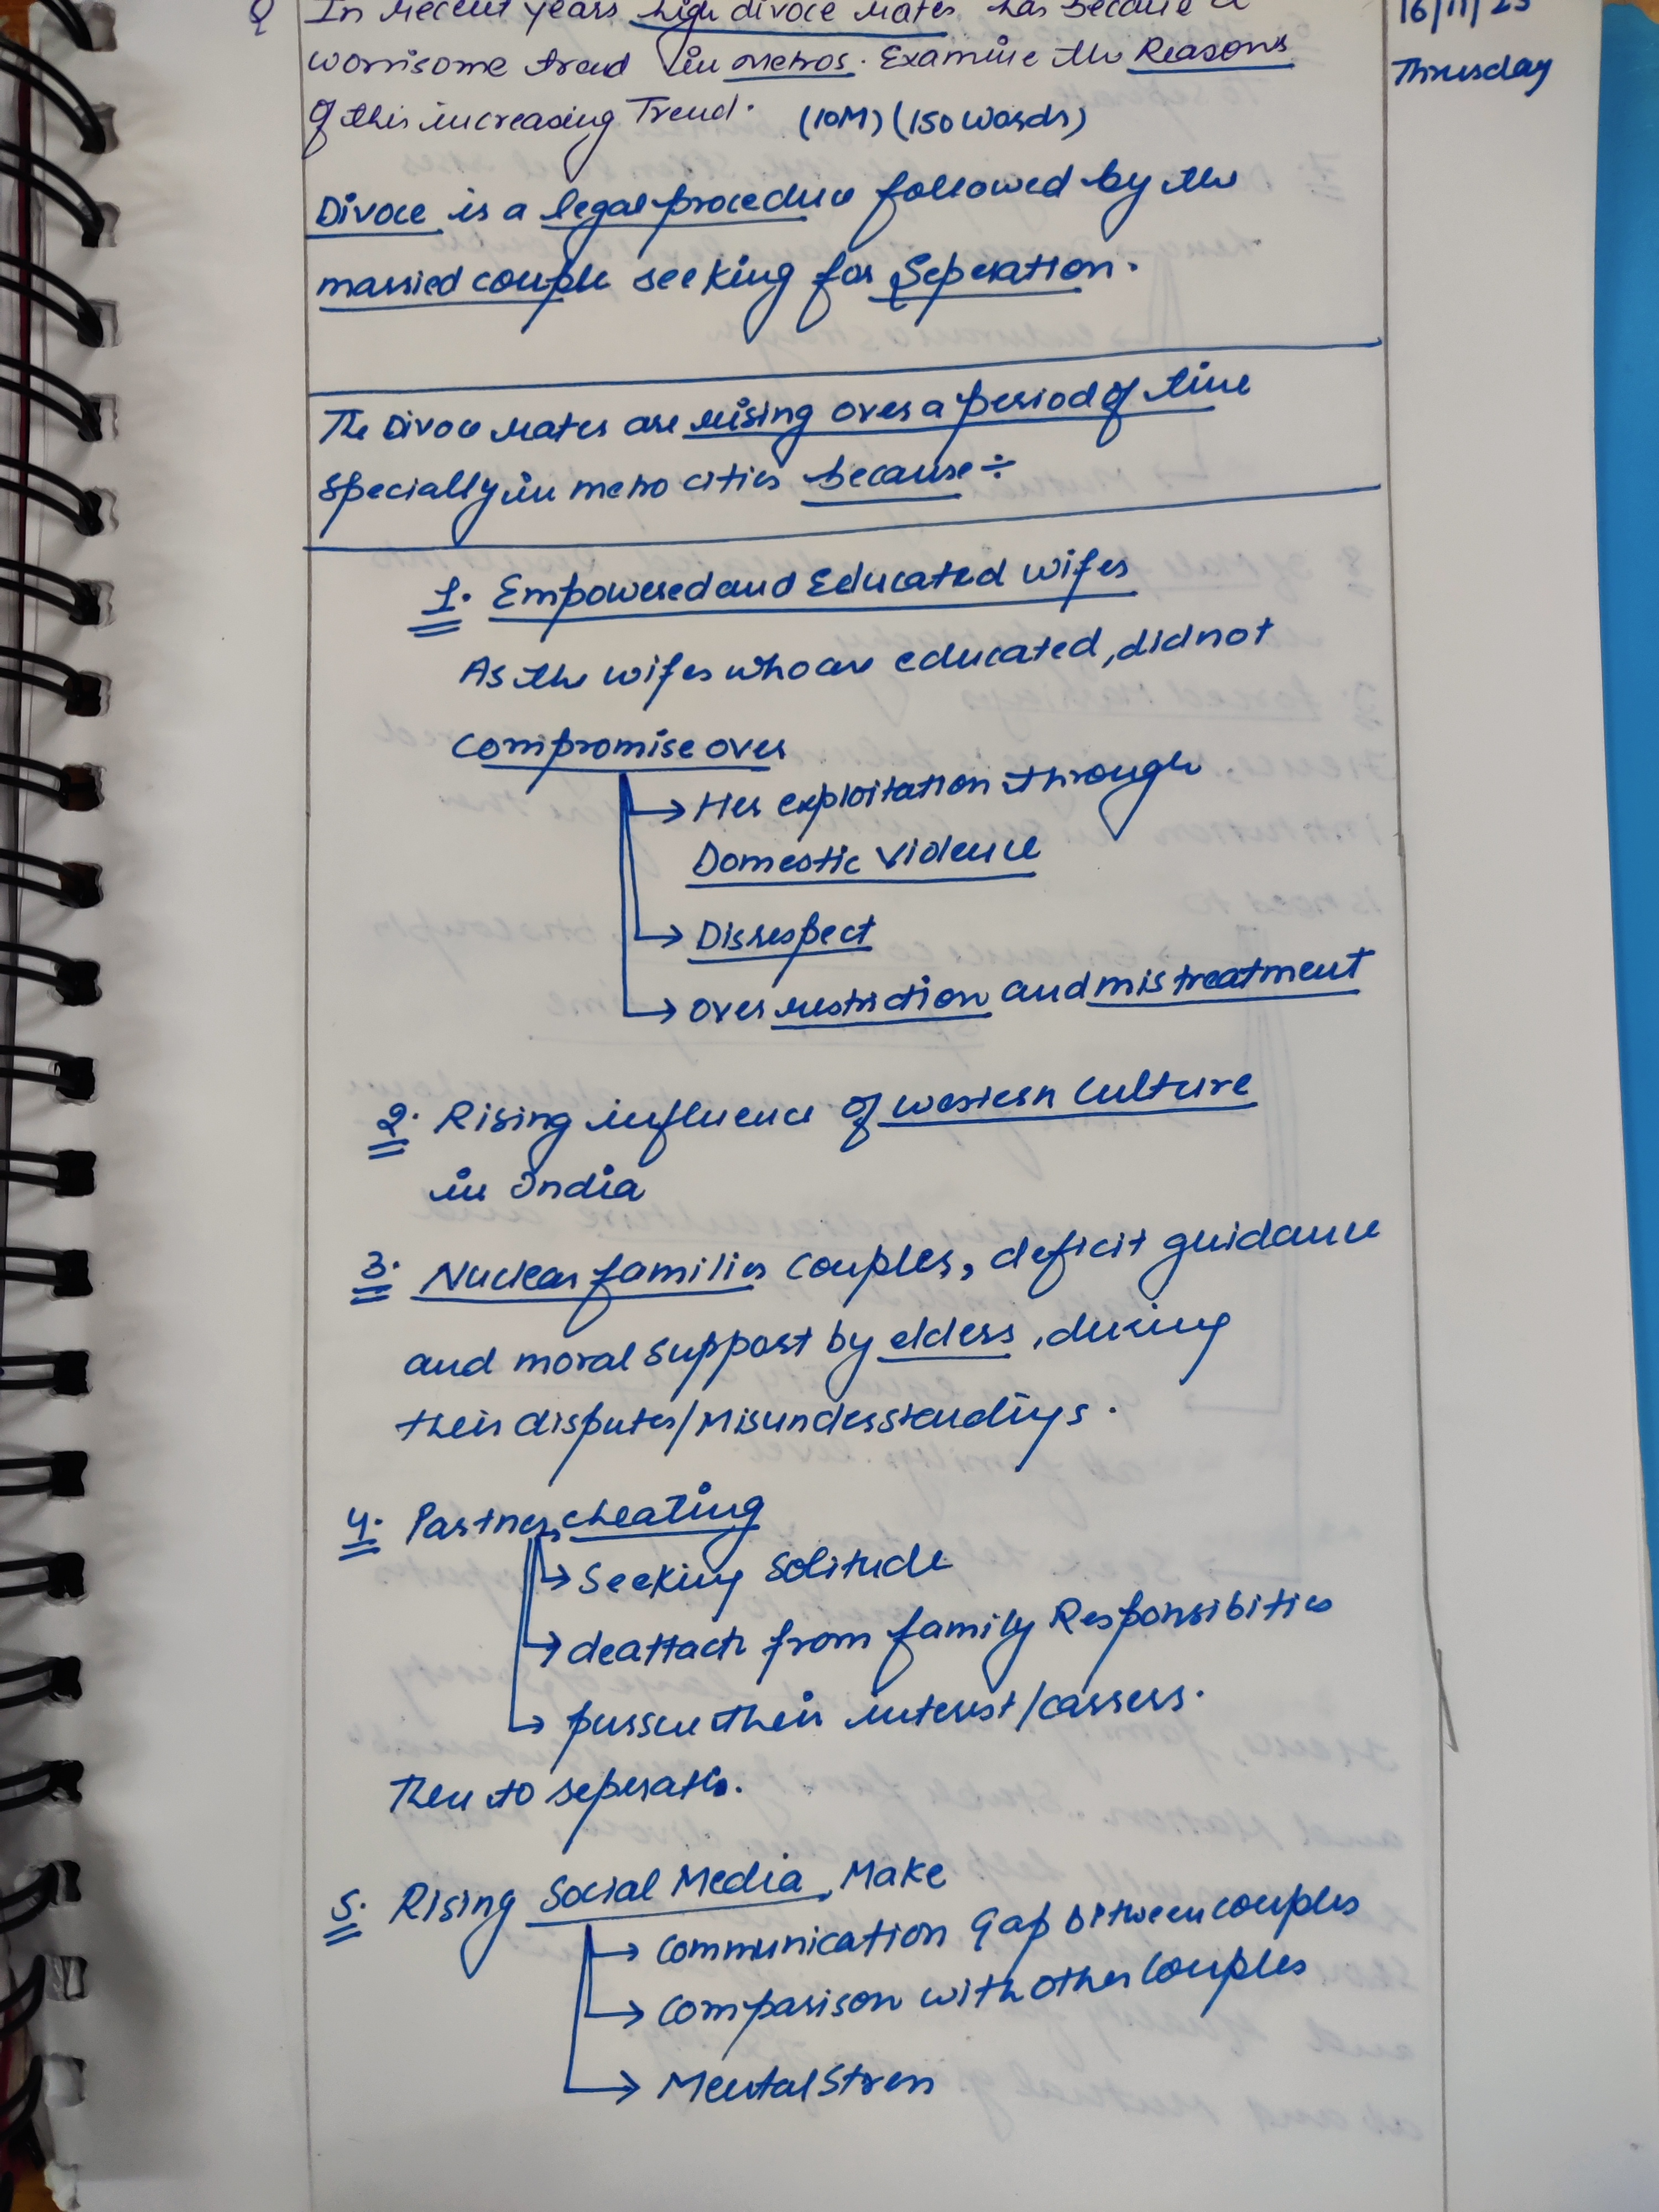 Q In recent years high divoce rates has became a
worrisome trend in metros. Examine the Reasons
of this increasing Trend. (10M) (150 words)
16/11/23
Thrusday
Divoce is a legal procedure followed by the
married couple seeking for Seperation.
The Divoce rates are rising over a period of time
specially in metro cities because ÷
1. Empowered and Educated wifes
As the wifes who are educated, did not
compromise over
→ Her exploitation through
Domestic Violence
→ Disrespect
→ over restriction and mistreatment
2. Rising influence of western Culture
in India
3. Nuclear families couples, deficit guidance
and moral support by elders, during
their disputes/Misunderstandings.
4. Partner cheating
→ Seeking Solitude
→ deattach from family Responsibities
→ pursue their interest/carrers.
Then to seperatio.
5. Rising Social Media, Make
→ Communication Gap between couples
→ Comparison with other Couples
→ Mental Stress